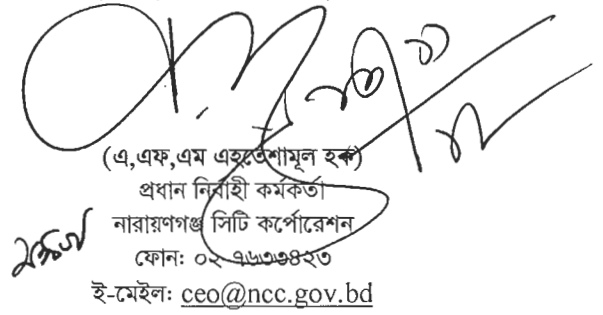 (এ,এফ,এম এহতেশামূল হক)
প্রধান নির্বাহী কর্মকর্তা
নারায়ণগঞ্জ সিটি কর্পোরেশন
ফোন: ০২ ৭৬৩৩৪২৩
ই-মেইল: ceo@ncc.gov.bd